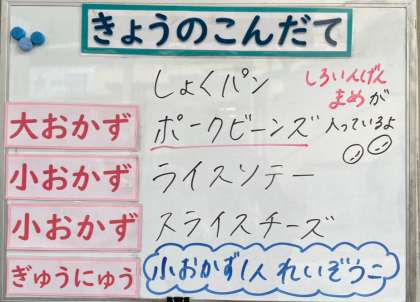 きょうのこんだて
しょくパン
しろいんげん
まめが
入っているよ
大おかず
ポークビーンズ
小おかず
ライスソテー
小おかず
スライスチーズ
ぎゅうにゅう
小おかず1人 れいぞうこ